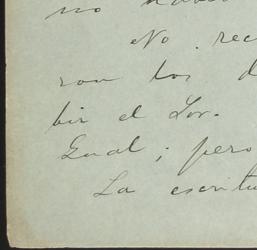 no
No rec
ron los d
bir el Sor.
Gual; pero
La escritu